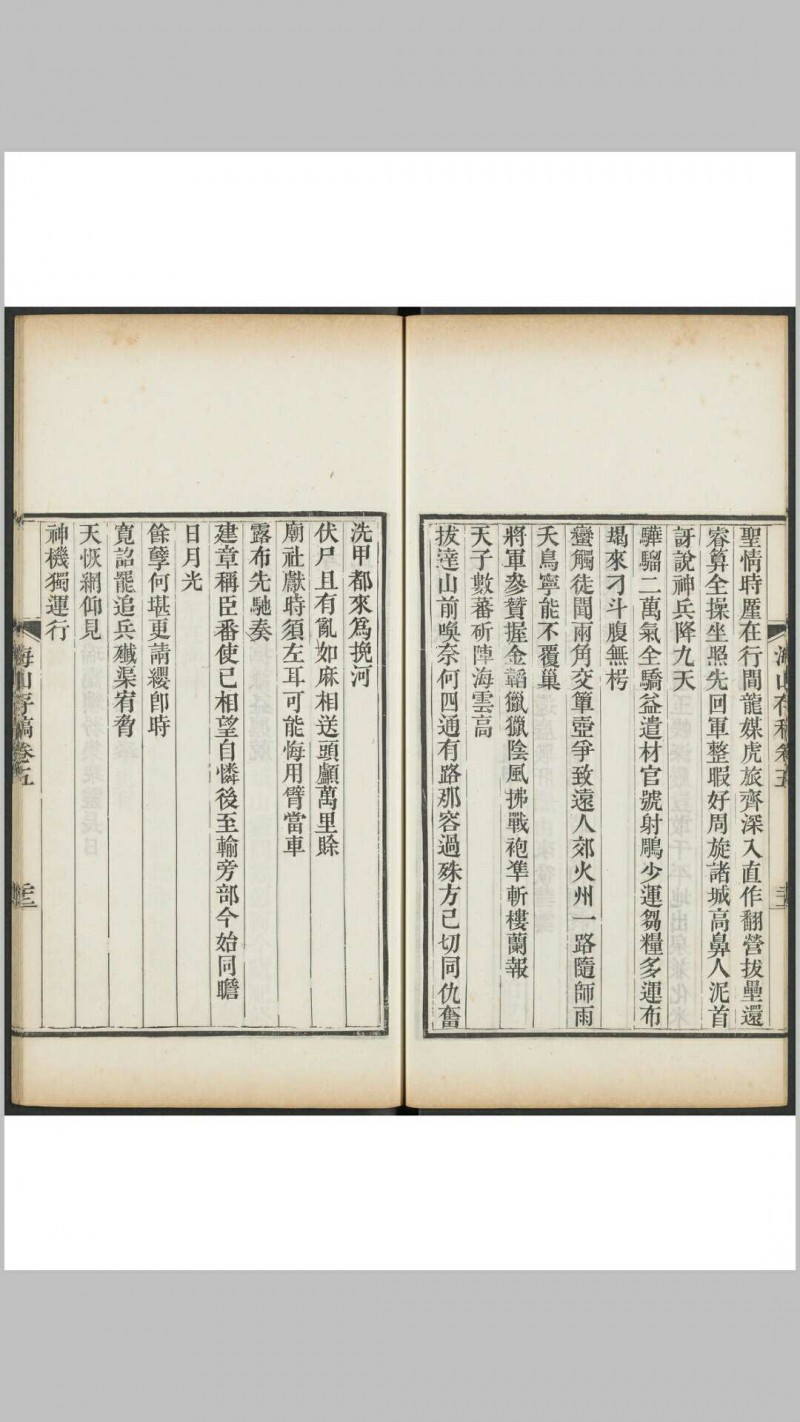 聖情時厪在行間龍媒虎旅齊深入直作翻營拔壘還
睿算全操坐照先回軍整暇好周旋諸城高鼻人泥首
訝說神兵降九天
驊騮二萬氣全驕益遣材官號射鵰少運芻糧多運布
朅來刁斗腹無枵
蠻觸徒聞兩角交簞壺爭致遠人郊火州一路隨師雨
夭鳥寧能不覆巢
將軍參贊握金韜獵獵陰風拂戰袍準斬樓蘭報
天子數蕃斫陣海雲高
拔達山前喚奈何四通有路那容過殊方已切同仇奮
海山存稿卷五
洗甲都來爲挽河
伏尸且有亂如麻相送頭顱萬里賒
廟社獻時須左耳可能悔用臂當車
露布先馳奏
建章稱臣番使已相望自憐後至輸旁部今始同瞻
日月光
餘孽何堪更請纓卽時
寬詔罷追兵殲渠宥脅
天恢網仰見
神機獨運行
海山存稿卷五